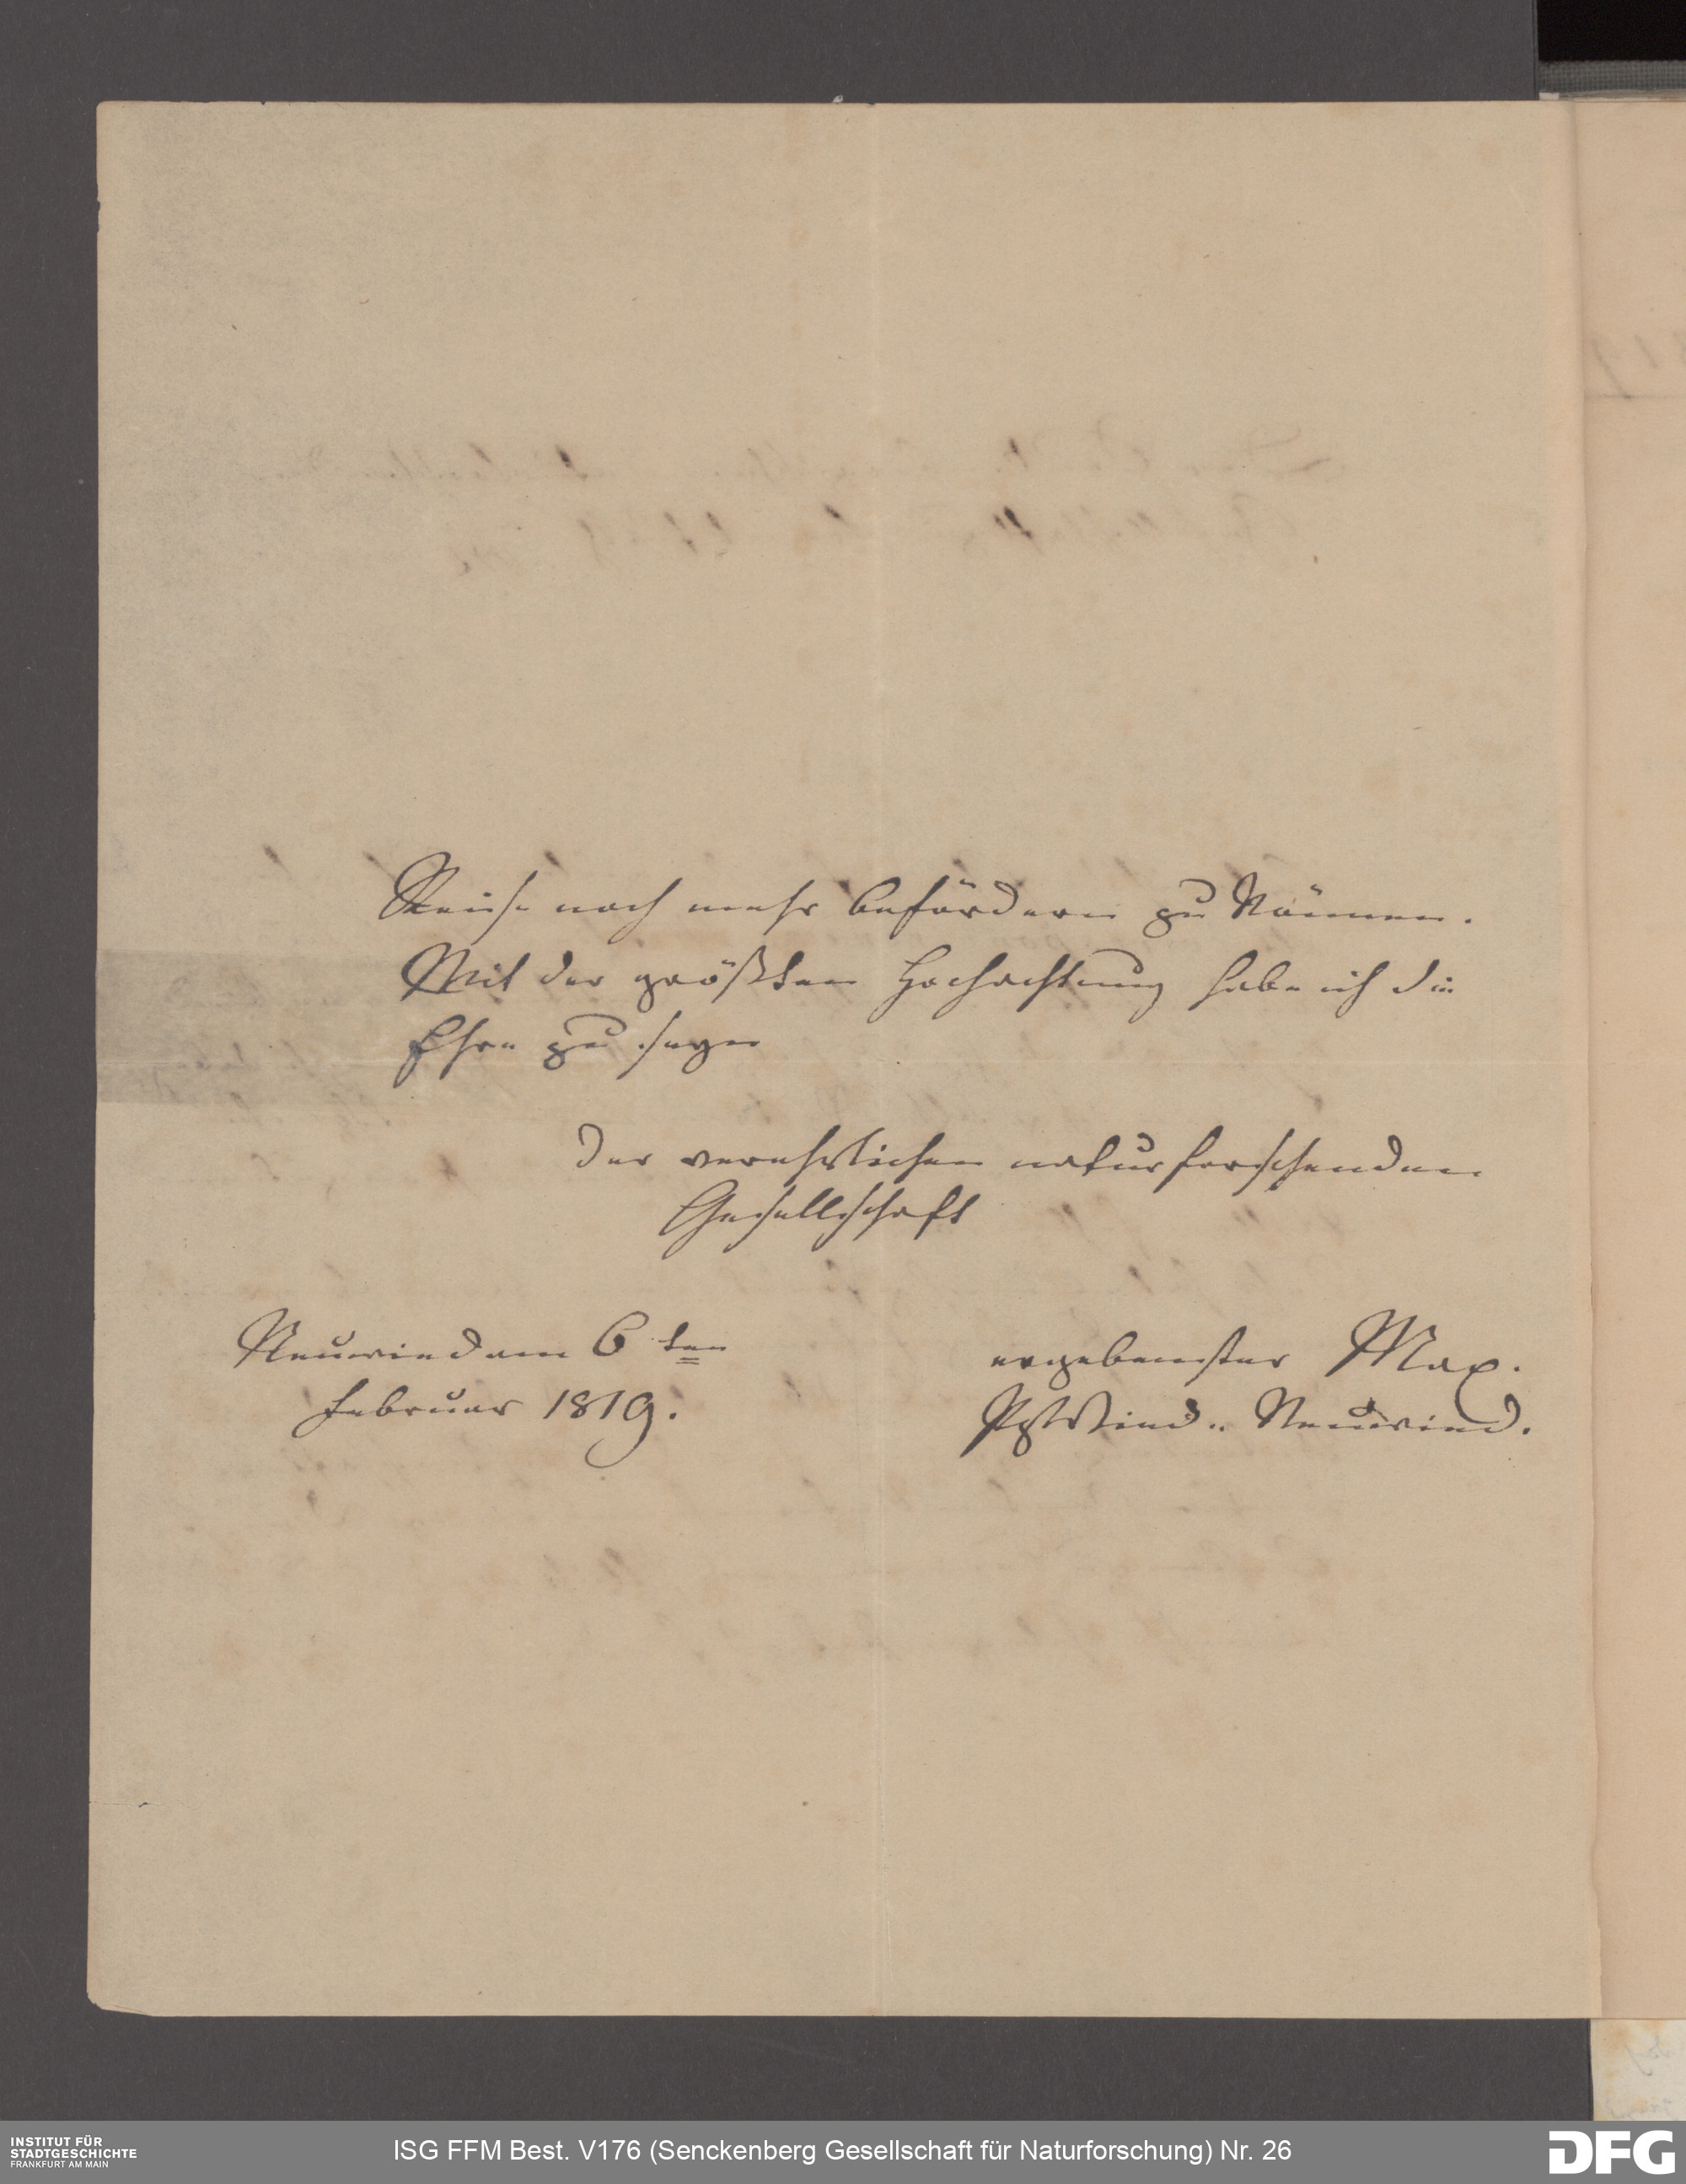 Weise noch mehr befördern zu können.
Mit der größten Hochachtung habe ich die
Ehre zu seyn
der verehrlichen naturforschenden
Gesellschaft
Neuwied am 6ten
Februar 1819.
ergebenster Max.
Pz Wied.. Neuwied.
INSTITUT FÜR
STADTGESCHICHTE
FRANKFURT AM MAIN
ISG FFM Best. V176 (Senckenberg Gesellschaft für Naturforschung) Nr. 26
DFG